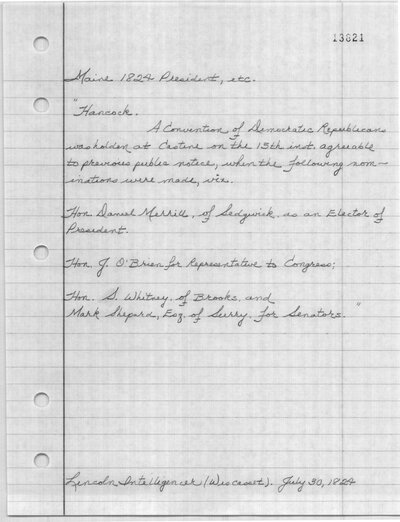 13821
Maine 1824 President, etc.
"Hancock.
A Convention of Democratic Republicans
was holden at Castine on the 15th inst. agreeable
to previous public notice, when the following nom-
inations were made, viz.
Hon. Daniel Merrill, of Sedgwick, as an Elector of
President.
Hon. J. O'Brien for Representative to Congress;
Hon. S. Whitney, of Brooks, and
Mark Shepard, Esq. of Surry, for Senators."
Lincoln Intelligencer (Wiscasset). July 30, 1824